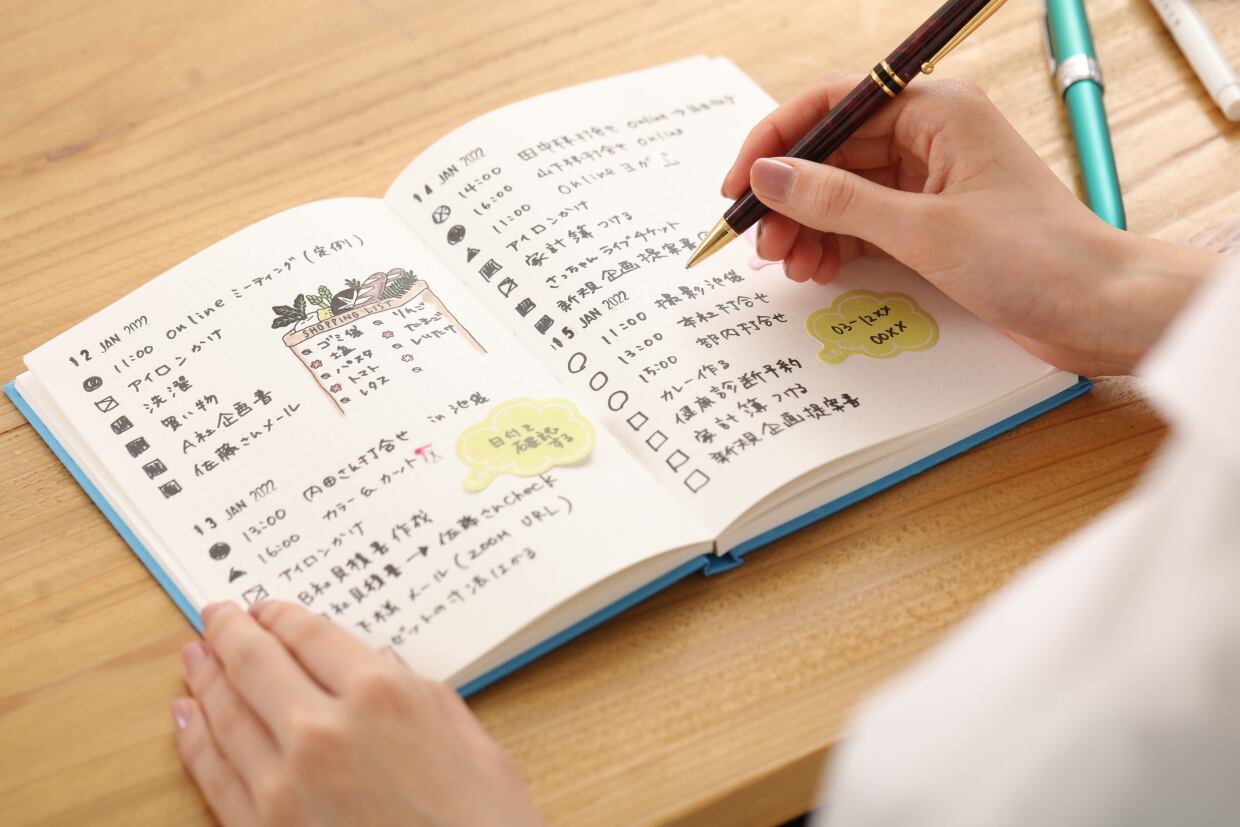 12 JAN 2022
11:00 Online ミーティング(定例)
アイロンかけ
洗濯
買い物
A社企画書
佐藤さんメール
SHOPPING LIST
ゴミ袋
塩
パスタ
トマト
レタス
りんご
たまご
しいたけ
13 JAN 2022
13:00 内田さん打合せ in 池袋
16:00 カラー & カット
日付を
確認
する
アイロンかけ
B社見積書作成
社見積書 → 佐藤さんCheck
下様 メール (ZOOM URL)
ゼットの寸法はかる
14 JAN 2022
14:00 田中様打合せ Online
16:00 山下様打合せ Online
11:00 Online ヨガ
アイロンかけ
家計簿つける
さっちゃんライブチケット
新規企画提案書
15 JAN 2022
11:00 撮影 池袋
13:00 本社打合せ
15:00 部内打合せ
カレー作る
健康診断予約
家計簿つける
新規企画提案書
03-12XX
00XX